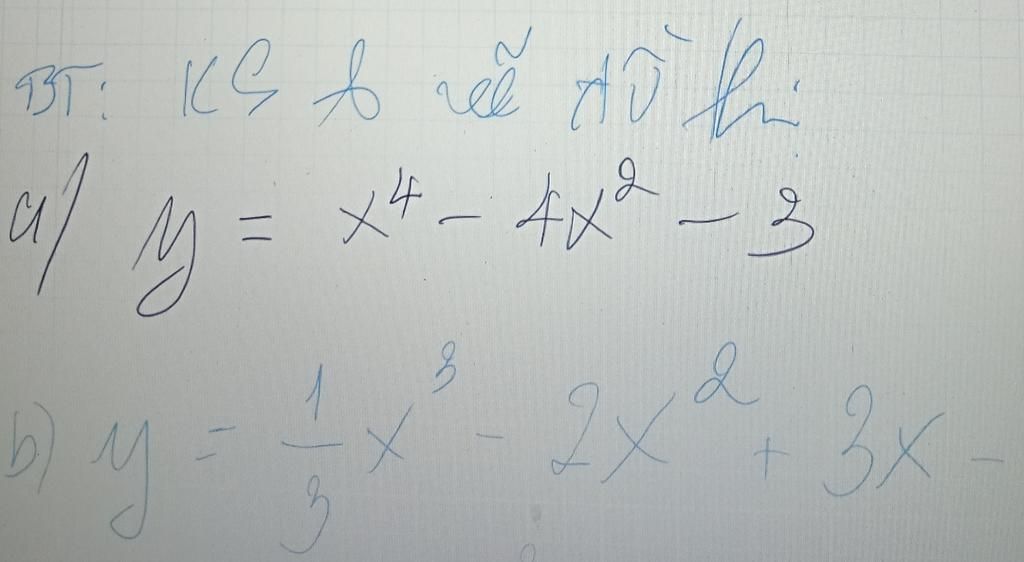 BT: KS & vẽ đồ thị
a/ y = x⁴ - 4x² - 3
b) y = 1/3 x³ - 2x² + 3x -